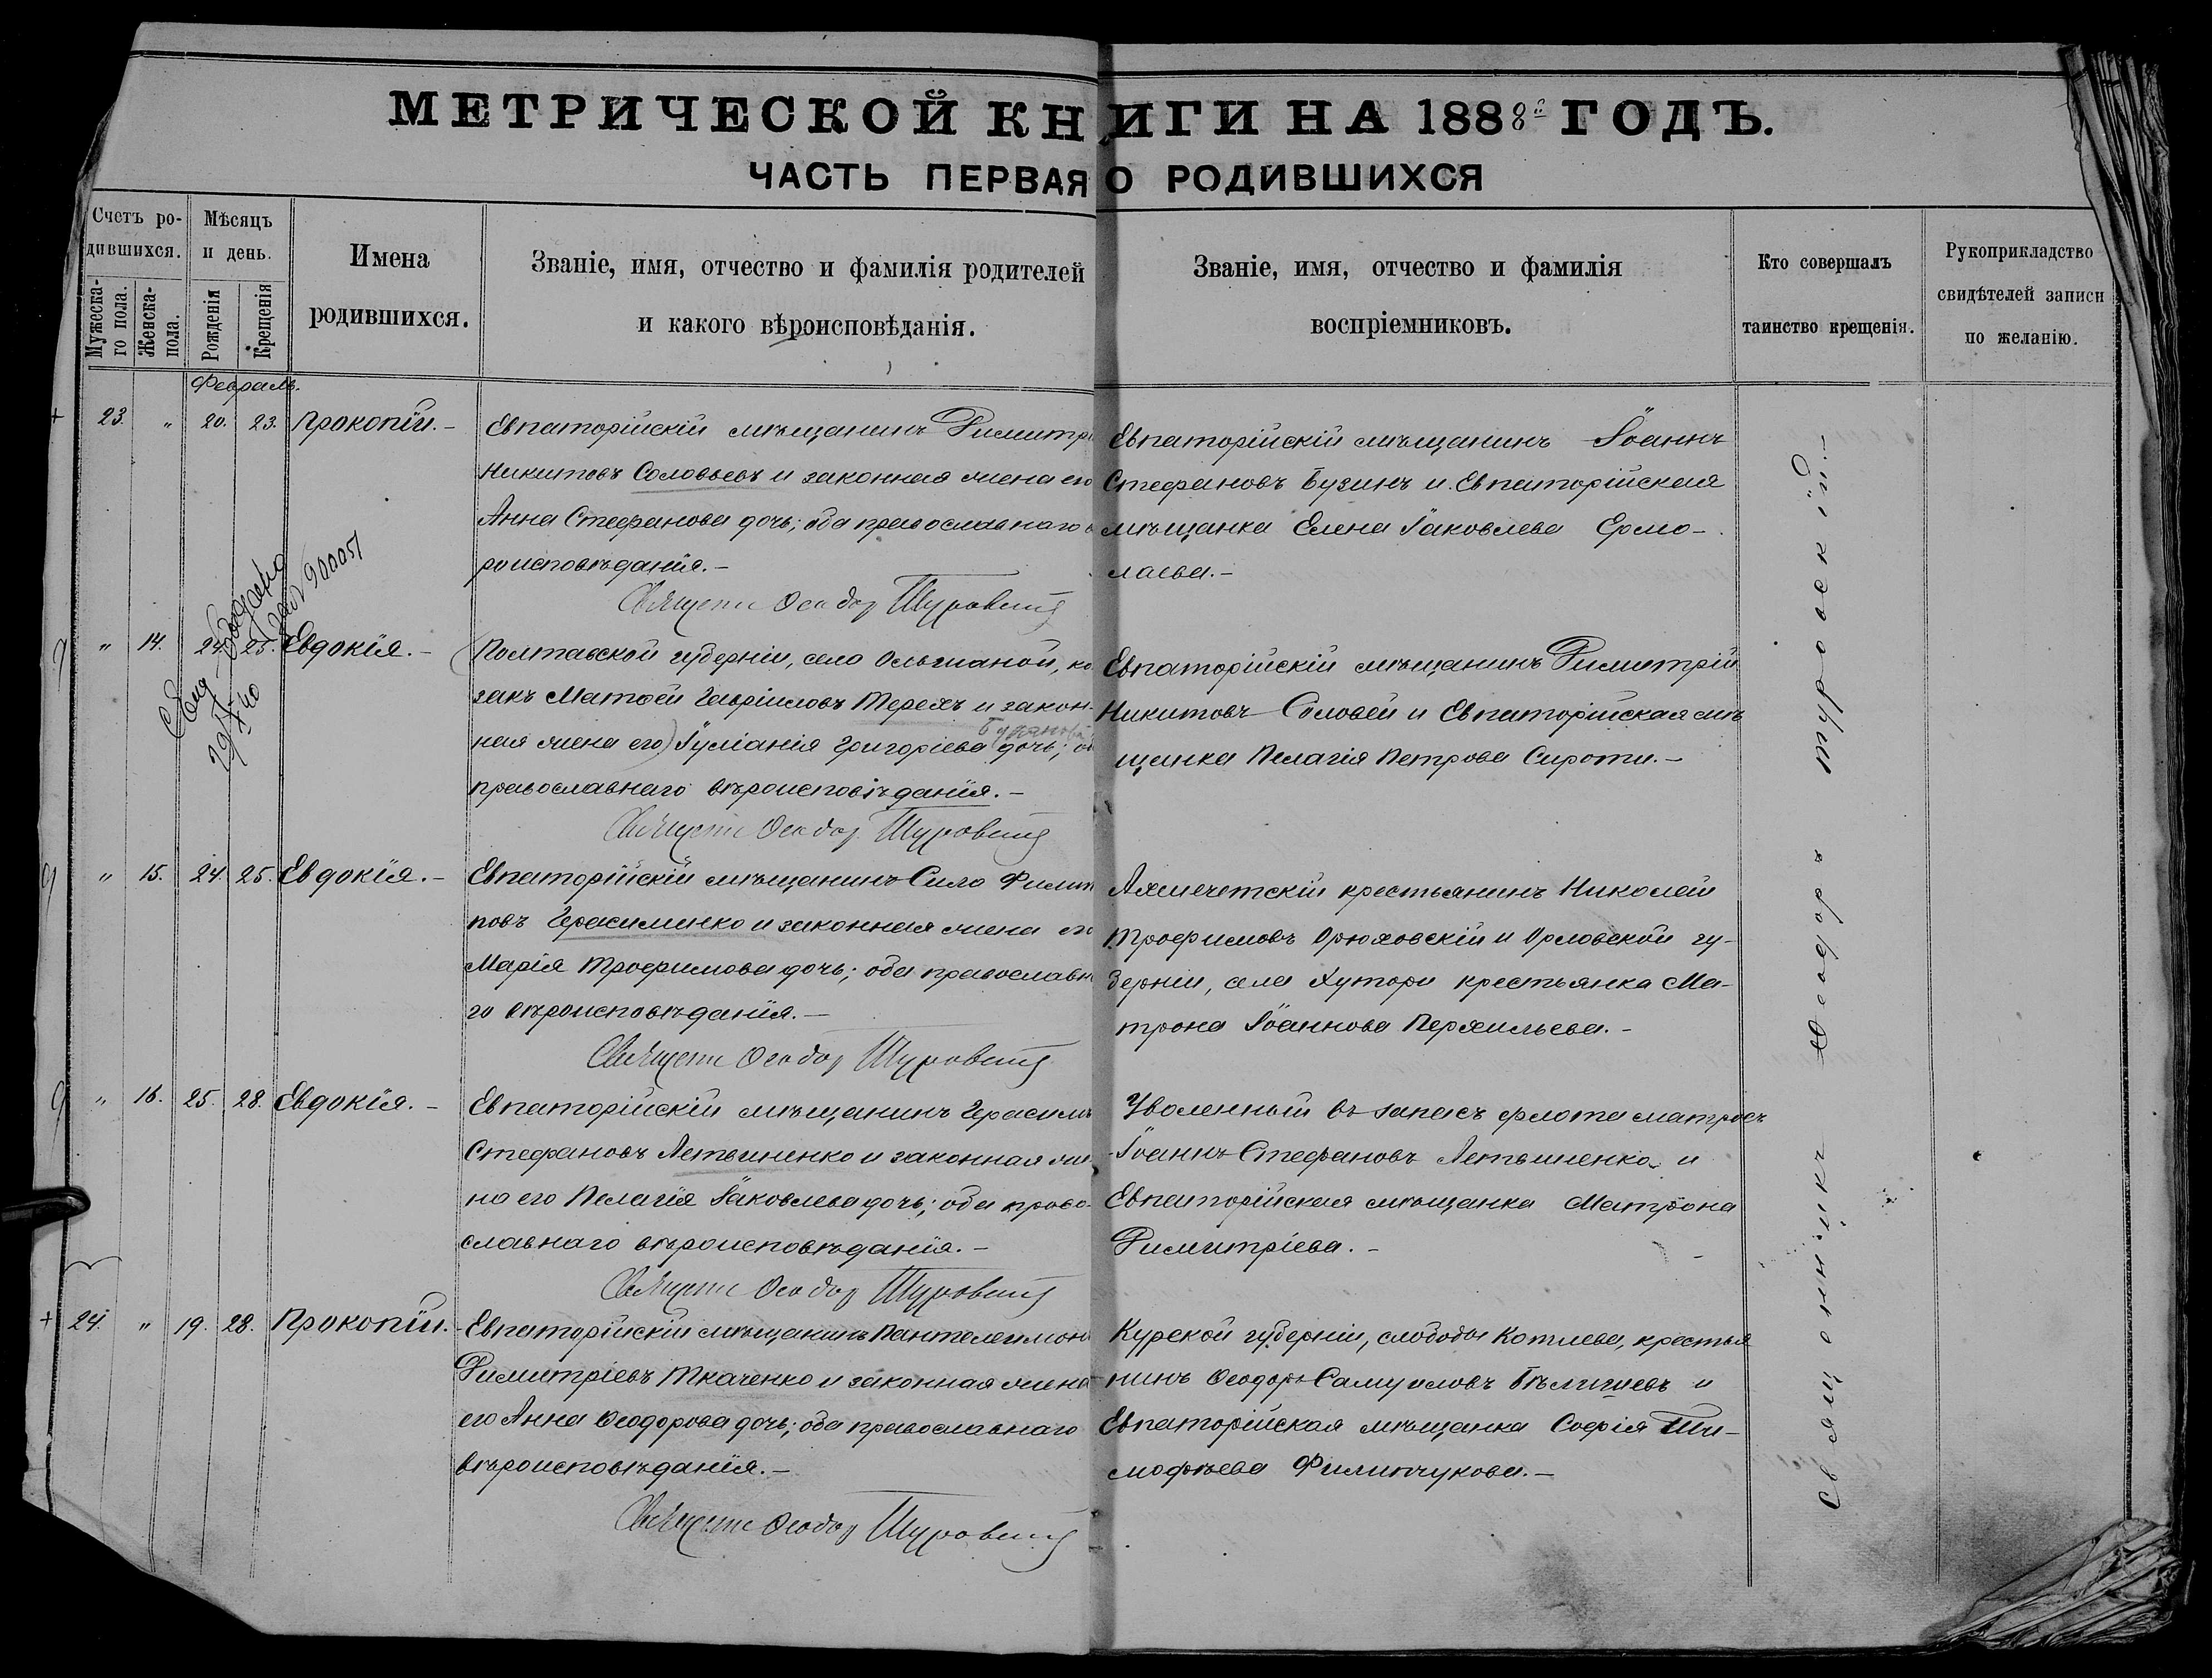 МЕТРИЧЕСКОЙ КНИГИ НА 1888 ГОДЪ.
ЧАСТЬ ПЕРВАЯ О РОДИВШИХСЯ
Счетъ ро-
дившихся.
Мужеска-
го пола.
Женска-
пола.
Мѣсяцъ
и день.
Рожденія
Крещенія
Имена
родившихся.
Званіе, имя, отчество и фамилія родителей
и какого вѣроисповѣданія.
Званіе, имя, отчество и фамилія
воспріемниковъ.
Кто совершалъ
таинство крещенія.
Рукоприкладство
свидѣтелей записи
по желанію.
Февраль.
23. " 20. 23. Прокопій.-
Евпаторійскій мѣщанинъ Димитрі
Никитовъ Соловьевъ и законная жена его
Анна Стефанова дочь; оба православнаго в
роисповѣданія.-
Священ Ѳеодор Туровскій
Евпаторійскій мѣщанинъ Іоаннъ
Стефановъ Бузинъ и Евпаторійская
мѣщанка Елена Іаковлева Ермо-
лаева.-
" 14. 24. 25. Евдокія.-
Полтавской губерніи, села Ольшаной, ко
закъ Матѳей Гавріиловъ Терехъ и закон-
ная жена его) Іуліанія Григоріева дочь; об
православнаго вѣроисповѣданія.-
Священ Ѳеодор Туровскій
Евпаторійскій мѣщанинъ Димитрій
Никитовъ Соловей и Евпаторійская мѣ
щанка Пелагія Петрова Сирота.-
" 15. 24. 25. Евдокія.-
Евпаторійскій мѣщанинъ Сила Филип
повъ Герасименко и законная жена его
Марія Трофимова дочь; оба православна
го вѣроисповѣданія.-
Священ Ѳеодор Туровскій
Ахмечетскій крестьянинъ Николай
Трофимовъ Орюховскій и Орловской гу-
берніи, села Хутора крестьянка Ма-
трона Іоаннова Перхильева.-
" 16. 25. 28. Евдокія.-
Евпаторійскій мѣщанинъ Герасимъ
Стефановъ Летвиненко и законная же
на его Пелагія Іаковлева дочь; оба право-
славнаго вѣроисповѣданія.-
Священ Ѳеодор Туровскій
Уволенный въ запасъ флота матросъ
Іоаннъ Стефановъ Летвиненко и
Евпаторійская мѣщанка Матрона
Димитріева.-
24. " 19. 28. Прокопій.-
Евпаторійскій мѣщанинъ Пантелеимонъ
Димитріевъ Ткаченко и законная жена
его Анна Ѳеодорова дочь; оба православнаго
вѣроисповѣданія.-
Священ Ѳеодор Туровскій
Курской губерніи, слободы Котлева, крестья
нинъ Ѳеодоръ Самуиловъ и
Евпаторійская мѣщанка Софія Ти-
мофѣева Филипчукова.-
Священникъ Ѳеодоръ Туровскій.-